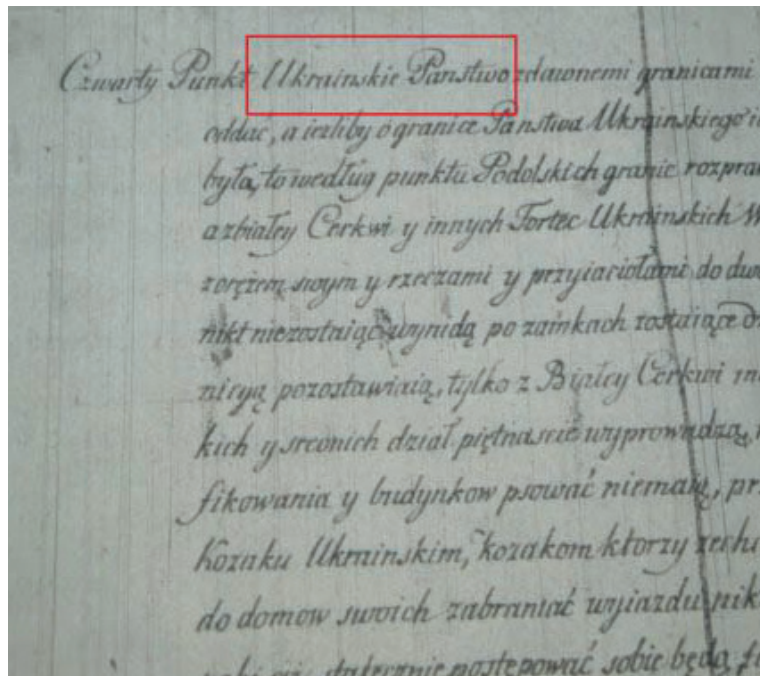 Czwarty Punkt Ukrainskie Panstwo zdawnemi granicami
oddać, a iezliby o granice Panstwa Ukrainskiego
była, to według punktu Podolskich granic
a zbiałey Cerkwi y innych Fortec Ukrainskich
zorężem swym y rzeczami y przyiaciołami do
nikt niezostaiąc wynidą po zamkach zostaiące
pozostawiaią, tylko z Białey Cerkwi
kich y srednich dział piętnascie wyprowadzą,
fikowania y budynkow psować niemaią,
Ukrainskim, kozakom ktorzy
do domow swoich zabraniać wyiazdu
postępować sobie będą,